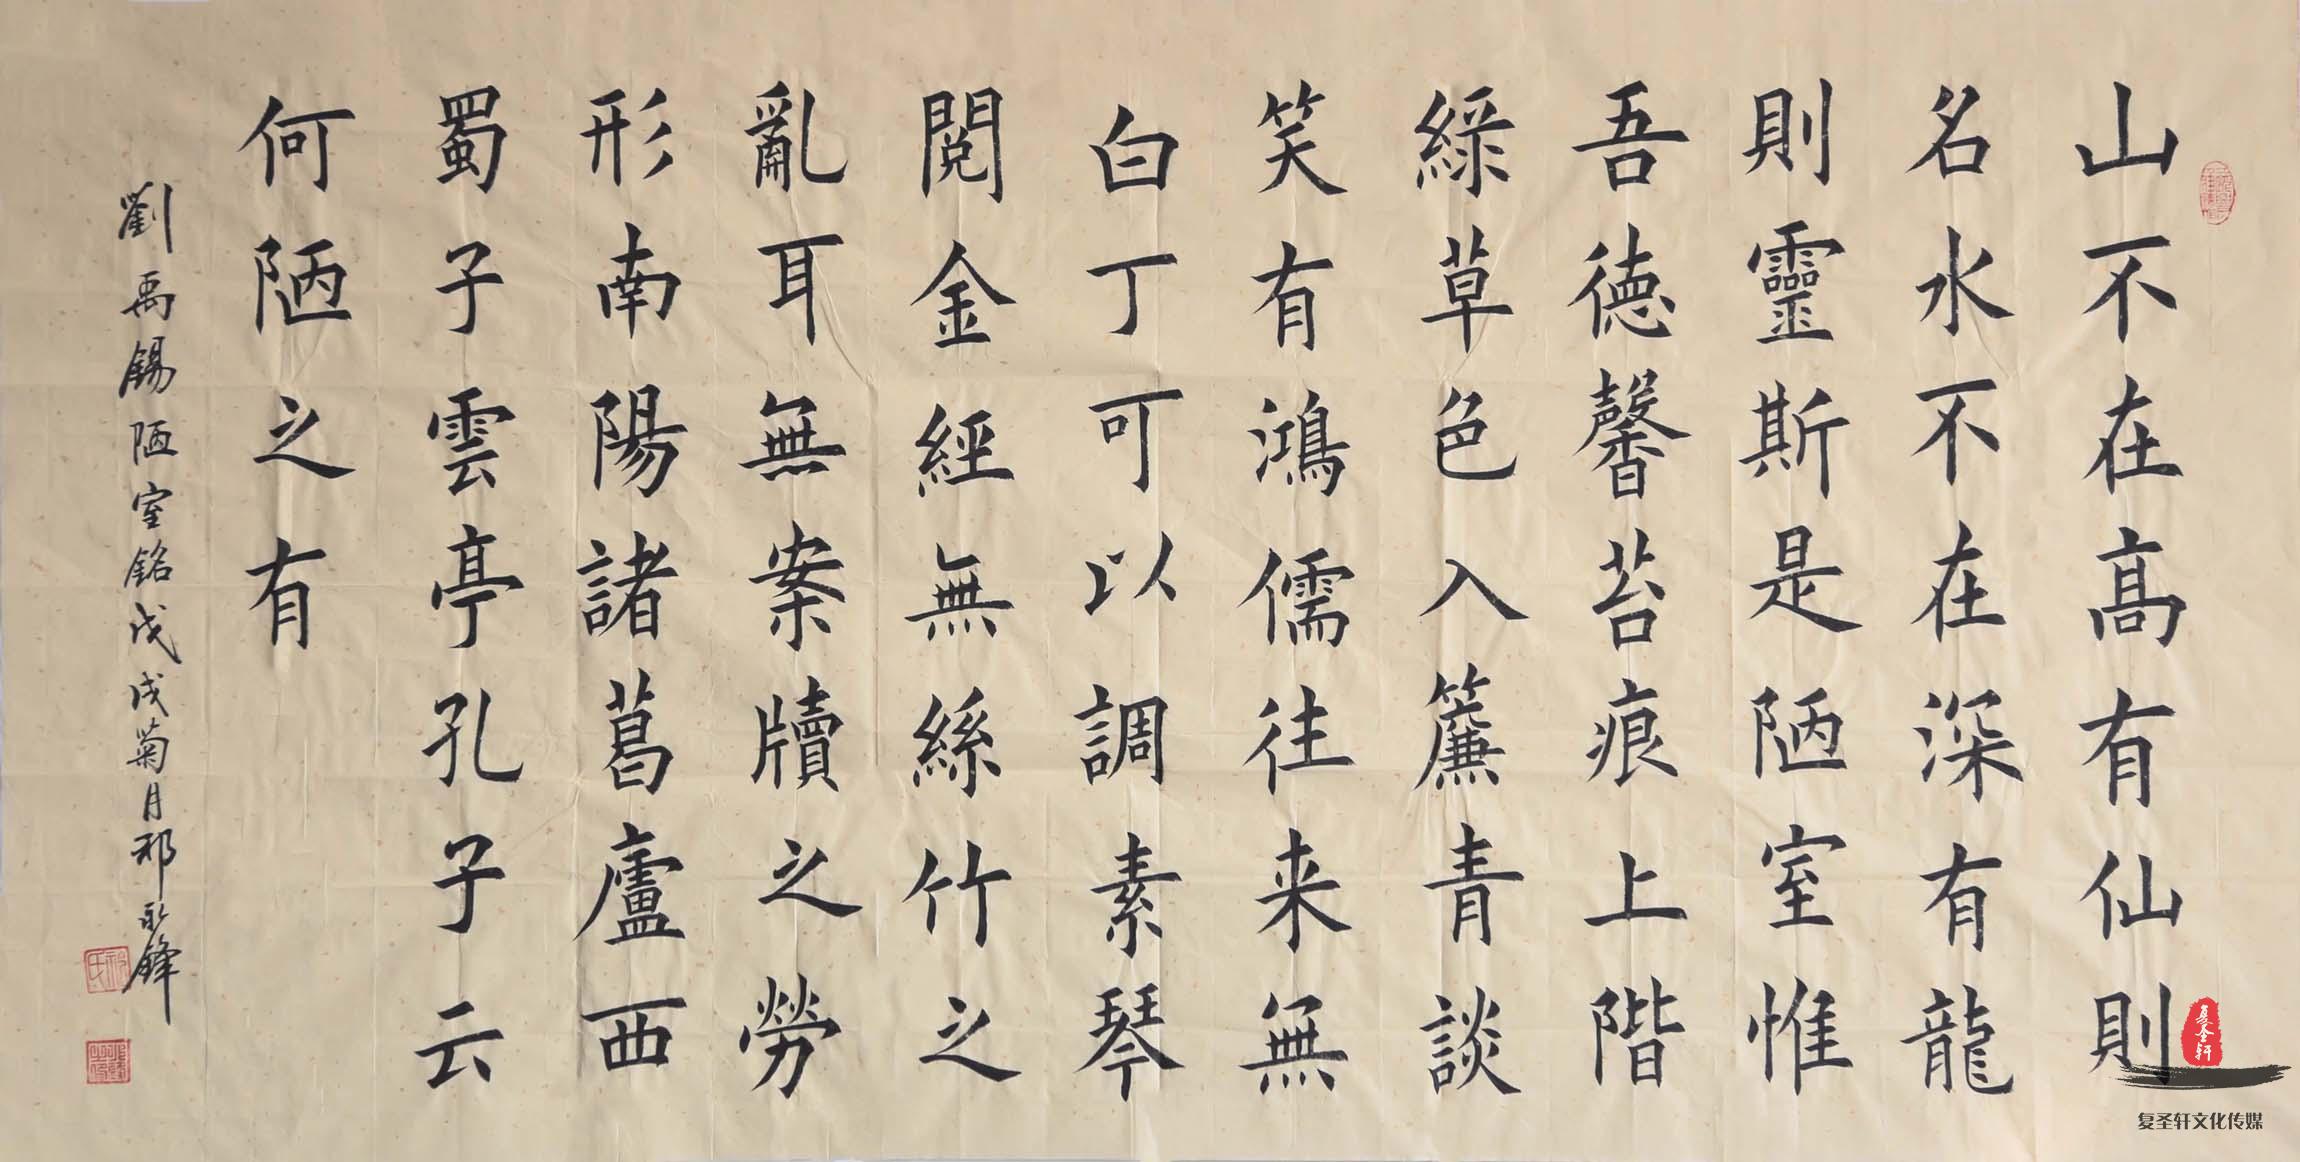 山不在高有仙則
名水不在深有龍
則靈斯是陋室惟
吾德馨苔痕上階
綠草色入簾青談
笑有鴻儒往来無
白丁可以調素琴
閱金經無絲竹之
亂耳無案牘之勞
形南陽諸葛廬西
蜀子雲亭孔子云
何陋之有
劉禹錫陋室銘戊戌菊月祁永鋒
复圣轩
复圣轩文化传媒